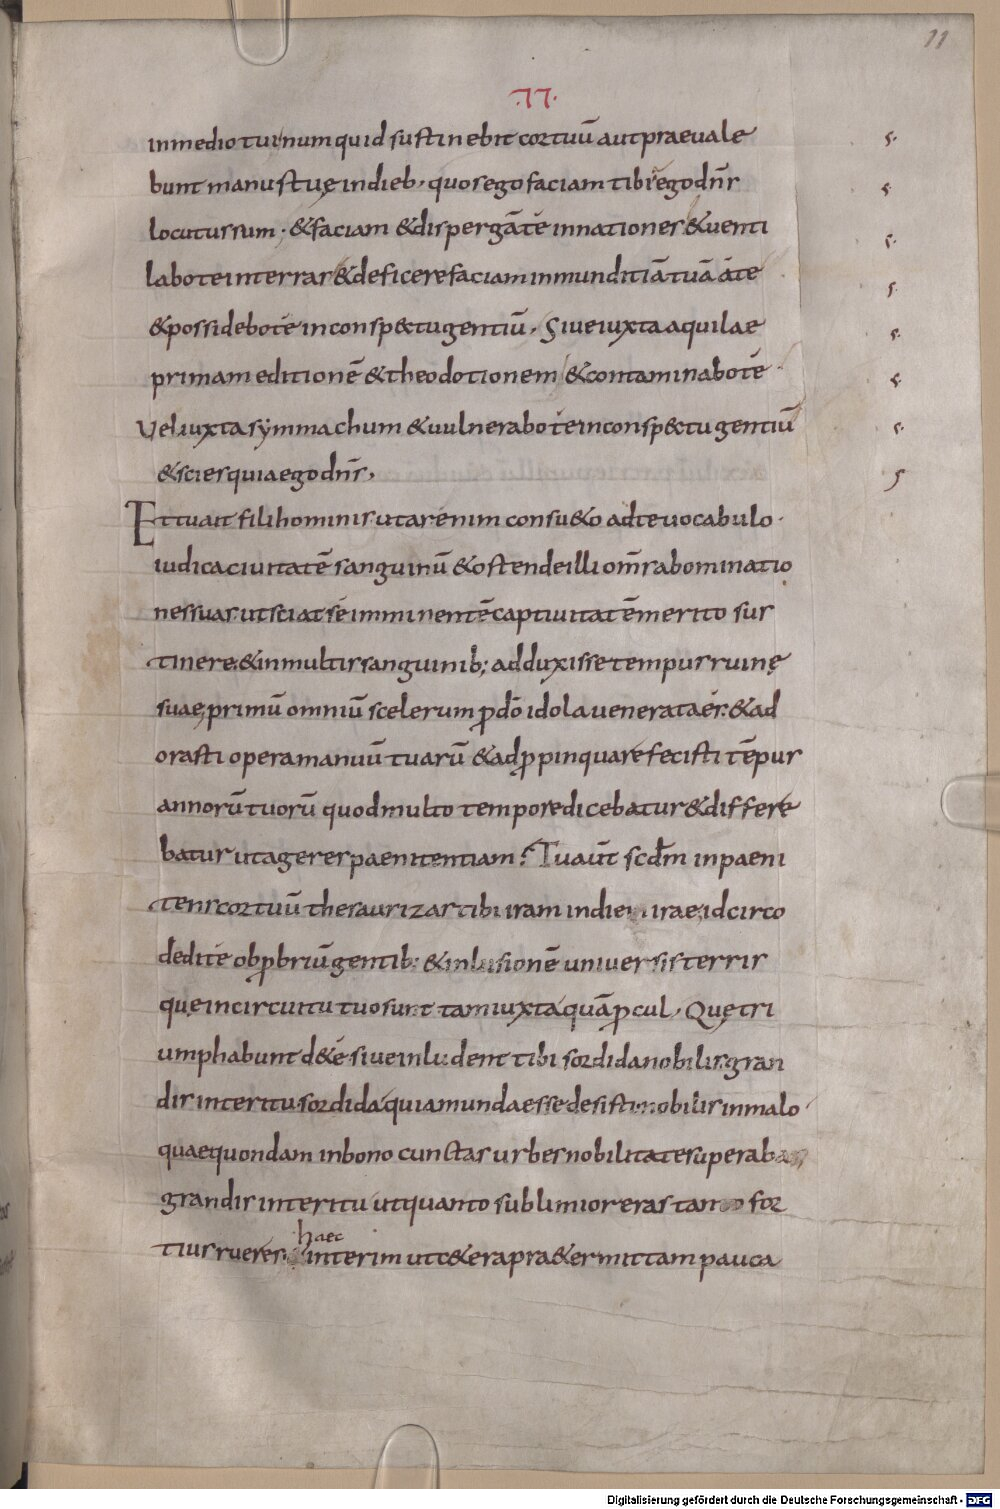 11
·77·
in medio tui numquid sustinebit cor tuū aut praevale
bunt manus tuę in dieb· quos ego faciam tibi· ego dn̄s
locutus sum· & faciam & dispergā tē in nationes & venti
labo te in terras & deficere faciam inmunditiā tuā ā te
& possidebo tē in consp&u gentiū· Sive iuxta aquilae
primam editionē & theodotionem & contaminabo tē·
Vel iuxta symmachum & vulnerabo tē in consp&u gentiū
& scies quia ego dn̄s·
Et tu ait fili hominis ut a rē nim consu&o ad te vocabulo·
iudica civitatē sanguinū & ostende illi om̄s abominatio
nes suas· ut sciat sē imminentē captivitatē merito sus
tinere· & in multis sanguinib; adduxisse tempus ruinę
suae, primū omniū scelerum ꝓ dō idola venerata és· & ad
orasti opera manuū tuarū & adꝓpinquare fecisti tēpus
annorū tuorū quod multo tempore dicebatur & differe
batur ut ageres paenitentiam· Tu aūt scd̄m inpaeni
tens cor tuū thesaurizas tibi iram in die irae, idcirco
dedi tē obꝓbriū gentib: & inlusionē universis terris
quę in circuitu tuo sunt tam iuxta quā ꝓcul· Quę tri
umphabunt de té sive inludent tibi sordida nobilis gran
dis interitu· sordida quia munda esse desisti· nobilis in malo·
quae quondam in bono cunctas urbes nobilitate superabas
grandis interitu ut quanto sublimior eras tanto for
tius rueres· haec interim ut c&era pra&ermittam pauca
s·
s·
s·
s·
s·
s·
s·
s
Digitalisierung gefördert durch die Deutsche Forschungsgemeinschaft - DFG